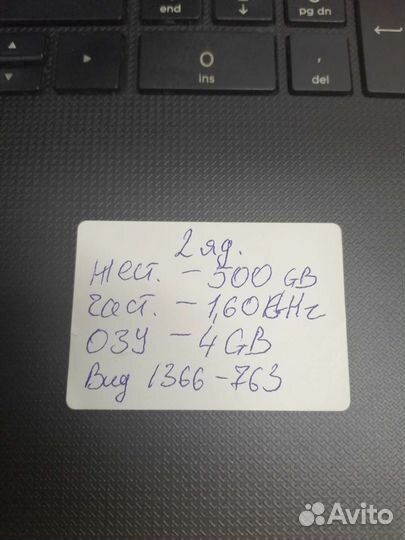 end
pg dn
0
ins
,
del
2 яд.
Жест. - 500 GB
Част. - 1,60 GHг
ОЗУ - 4 GB
Вид 1366-763
Avito